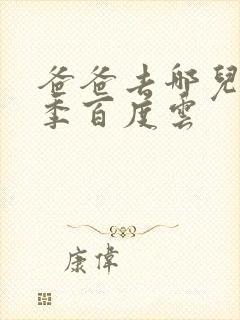 爸爸去哪兒
季百度雲
康偉